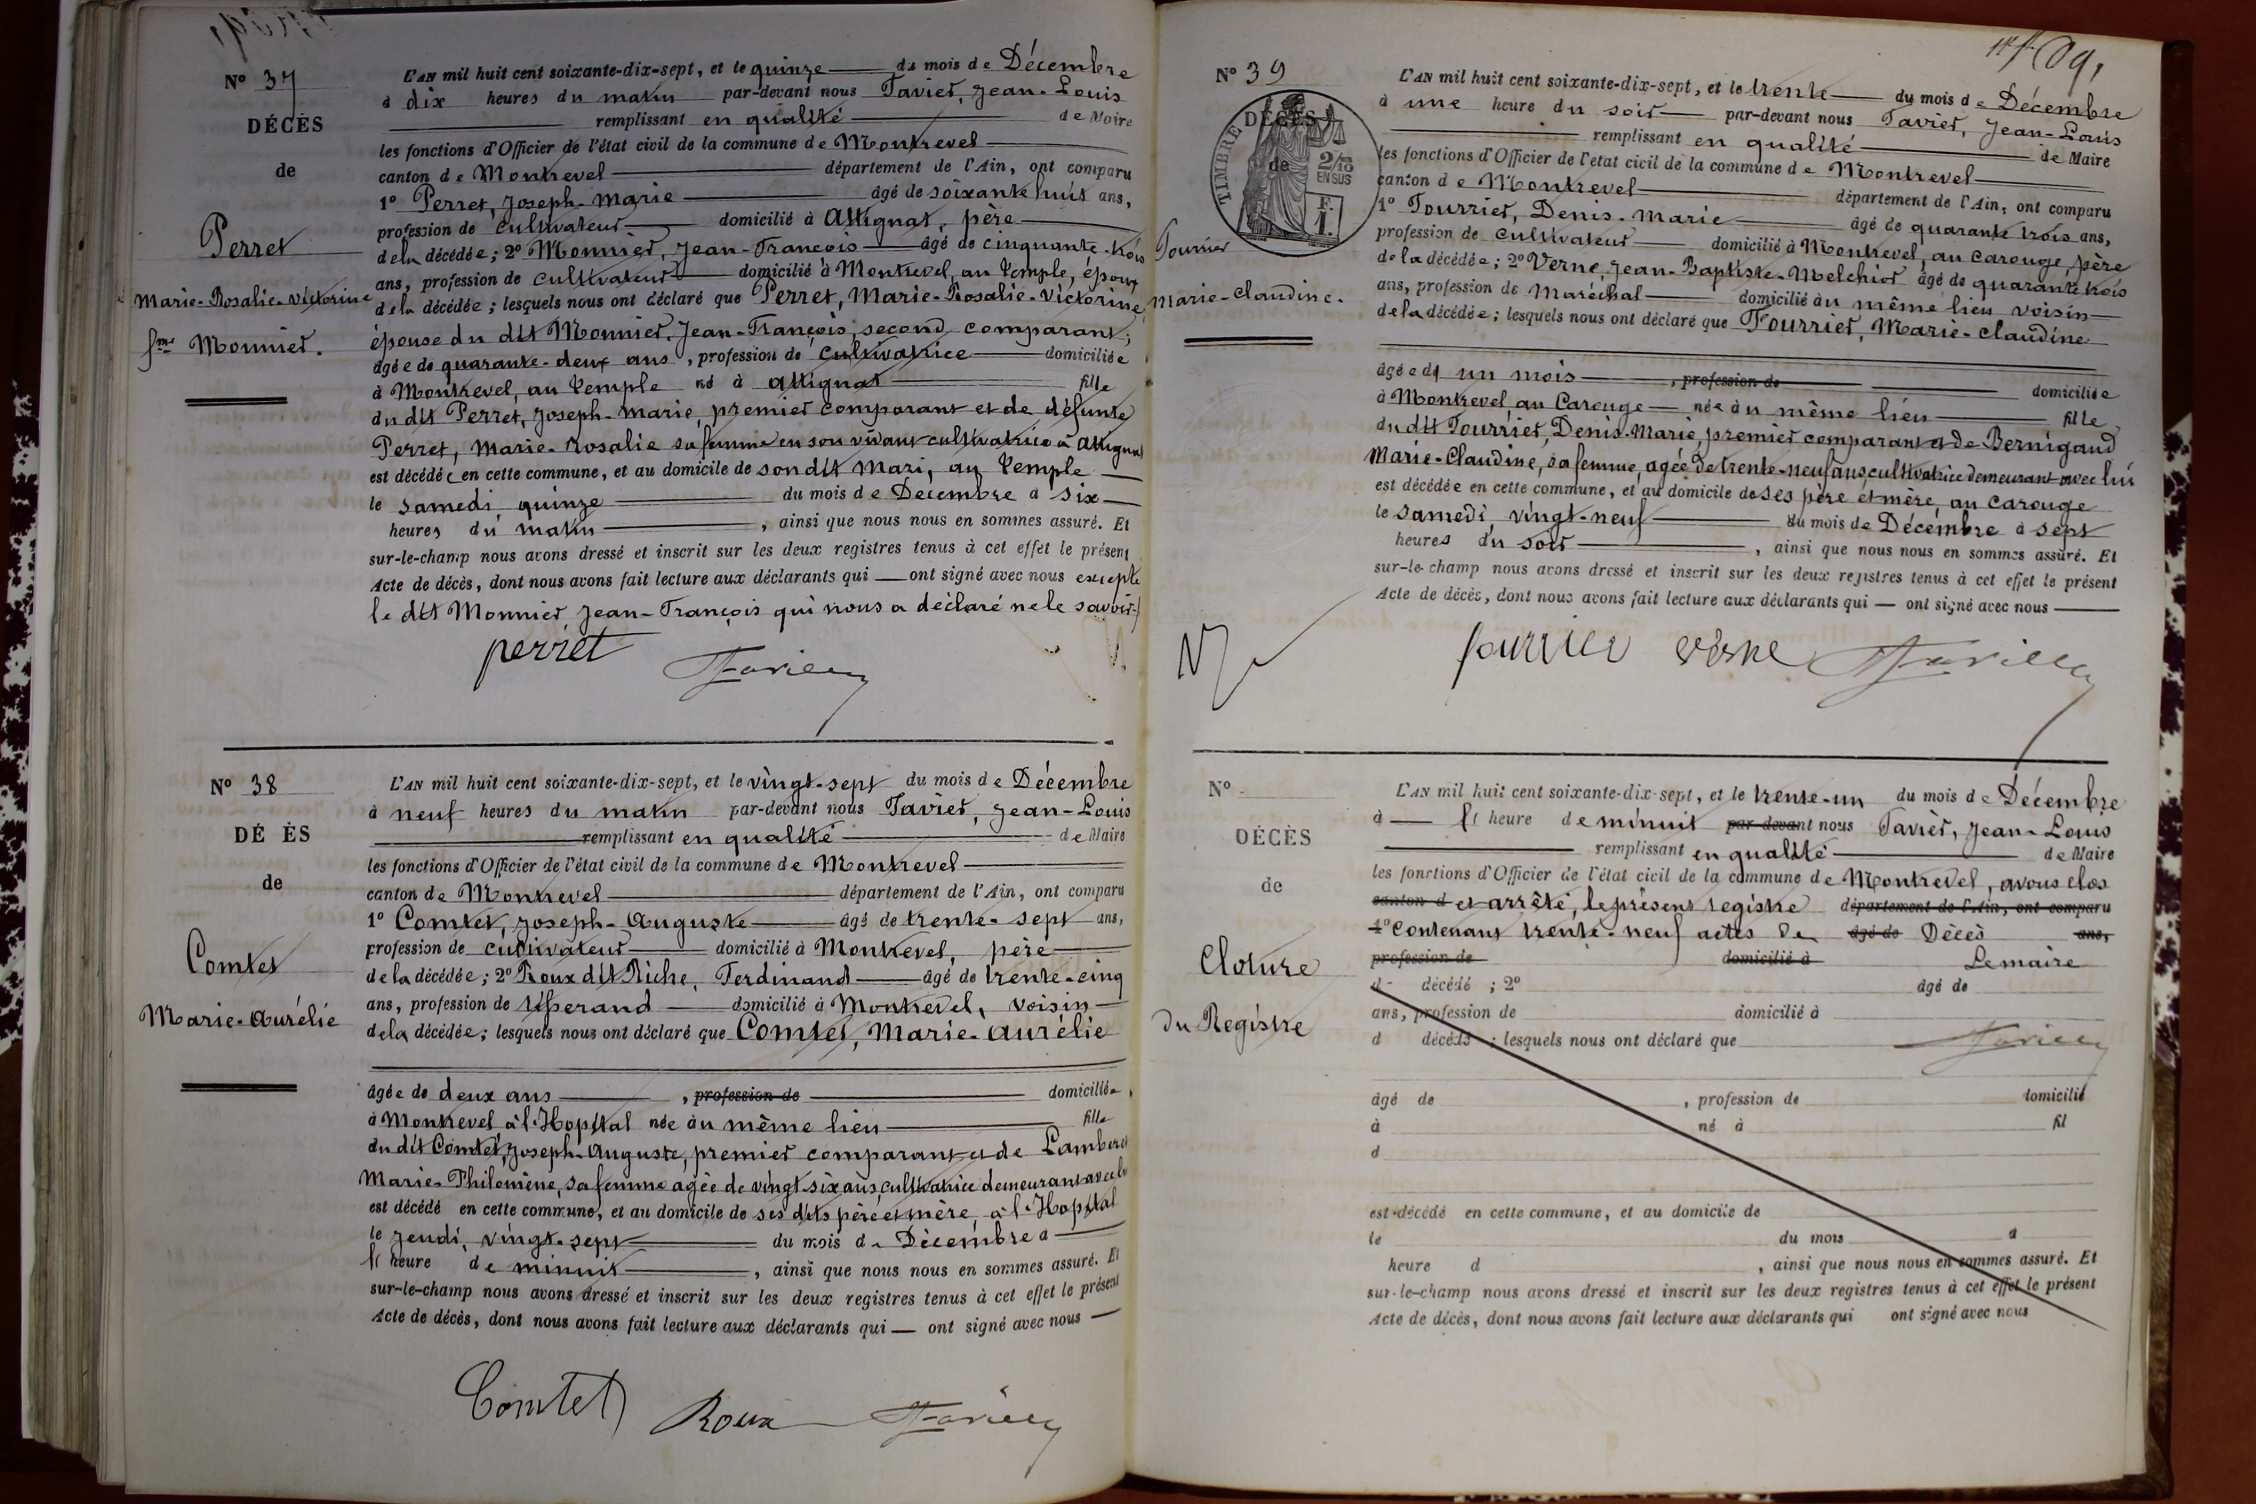 N° 37
DÉCÈS
de
Perret
Marie-Rosalie-Victorine
fme Monnier.
L'AN mil huit cent soixante-dix-sept, et le quinze du mois de Décembre
à dix heures du matin par-devant nous Favier, Jean-Louis
remplissant en qualité de Maire
les fonctions d'Officier de l'état civil de la commune de Montrevel
canton de Montrevel département de l'Ain, ont comparu
1° Perret, Joseph-Marie âgé de soixante huit ans,
profession de cultivateur domicilié à Attignat, père
de la décédée; 2° Monnier, Jean-François âgé de cinquante-trois
ans, profession de cultivateur domicilié à Montrevel, au Temple, époux
de la décédée; lesquels nous ont déclaré que Perret, Marie-Rosalie-Victorine,
épouse du dit Monnier, Jean-François, second comparant;
âgée de quarante-deux ans, profession de cultivatrice domiciliée
à Montrevel, au Temple né à Attignat fille
du dit Perret, Joseph-Marie, premier comparant et de défunte
Perret, Marie-Rosalie sa femme en son vivant cultivatrice à Attignat
est décédée en cette commune, et au domicile de son dit mari, au Temple
le samedi, quinze du mois de Décembre à six
heures du matin, ainsi que nous nous en sommes assuré. Et
sur-le-champ nous avons dressé et inscrit sur les deux registres tenus à cet effet le présent
Acte de décès, dont nous avons fait lecture aux déclarants qui — ont signé avec nous excepté
le dit Monnier, Jean-François qui nous a déclaré ne le savoir
perret Favier
N° 38
DÉ ÈS
de
Comtet
Marie-Aurélie
L'AN mil huit cent soixante-dix-sept, et le vingt-sept du mois de Décembre
à neuf heures du matin par-devant nous Favier, Jean-Louis
remplissant en qualité de Maire
les fonctions d'Officier de l'état civil de la commune de Montrevel
canton de Montrevel département de l'Ain, ont comparu
1° Comtet, Joseph-Auguste âgé de trente-sept ans,
profession de cultivateur domicilié à Montrevel, père
de la décédée; 2° Roux dit Riche, Ferdinand âgé de trente-cinq
ans, profession de tisserand domicilié à Montrevel, voisin
de la décédée; lesquels nous ont déclaré que Comtet, Marie-Aurélie
âgée de deux ans, profession de domiciliée
à Montrevel à l'Hopital née au même lieu fille
du dit Comtet, Joseph-Auguste, premier comparant et de Lambert
Marie-Philomène, sa femme agée de vingt-six ans, cultivatrice demeurant avec lui
est décédé en cette commune, et au domicile de ses dits père et mère, à l'Hopital
le jeudi, vingt-sept du mois de Décembre à
l' heure de minuit, ainsi que nous nous en sommes assuré. Et
sur-le-champ nous avons dressé et inscrit sur les deux registres tenus à cet effet le présent
Acte de décès, dont nous avons fait lecture aux déclarants qui — ont signé avec nous —
Comtet Roux Favier
N° 39
TIMBRE
2/10
EN SUS
F.
1.
DÉCÈS
de
Fourrier
Marie-Claudine.
L'AN mil huit cent soixante-dix-sept, et le trente du mois de Décembre
à une heure du soir par-devant nous Favier, Jean-Louis
remplissant en qualité de Maire
les fonctions d'Officier de l'état civil de la commune de Montrevel
canton de Montrevel département de l'Ain, ont comparu
1° Fourrier, Denis-Marie âgé de quarante trois ans,
profession de cultivateur domicilié à Montrevel, au Carouge, père
de la décédée; 2° Verne, Jean-Baptiste-Melchior âgé de quarante trois
ans, profession de Maréchal domicilié au même lieu voisin
de la décédée; lesquels nous ont déclaré que Fourrier, Marie-Claudine
âgée de un mois, profession de domiciliée
à Montrevel, au Carouge née au même lieu fille
du dit Fourrier, Denis-Marie, premier comparant et de Bernigaud
Marie-Claudine, sa femme, agée de trente-neuf ans, cultivatrice demeurant avec lui
est décédée en cette commune, et au domicile de ses père et mère, au Carouge
le samedi, vingt-neuf du mois de Décembre à sept
heures du soir, ainsi que nous nous en sommes assuré. Et
sur-le-champ nous avons dressé et inscrit sur les deux registres tenus à cet effet le présent
Acte de décès, dont nous avons fait lecture aux déclarants qui — ont signé avec nous
fourrier verne Favier
N°
DÉCÈS
de
Cloture
du Registre
L'AN mil huit cent soixante-dix-sept, et le trente-un du mois de Décembre
à l' heure de minuit par-devant nous Favier, Jean-Louis
remplissant en qualité de Maire
les fonctions d'Officier de l'état civil de la commune de Montrevel, avons clos
canton d et arrêté, le présent registre département de l'Ain, ont comparu
1° contenant trente-neuf actes de âgé de Décès ans,
profession de domicilié à Le maire
d décédé; 2° âgé de
ans, profession de domicilié à
d décédé; lesquels nous ont déclaré que Favier
âgé de, profession de domicilié
à né à fil
d
est décédé en cette commune, et au domicile de
le du mois à
heure d, ainsi que nous nous en sommes assuré. Et
sur-le-champ nous avons dressé et inscrit sur les deux registres tenus à cet effet le présent
Acte de décès, dont nous avons fait lecture aux déclarants qui ont signé avec nous